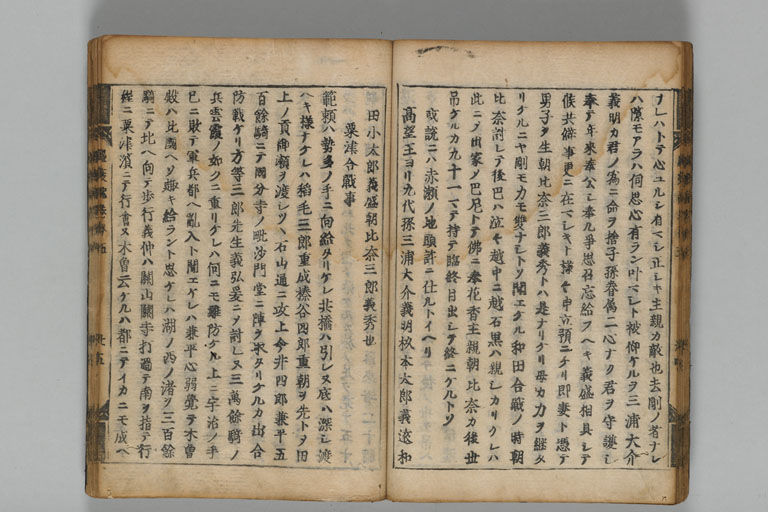 ナレハトテ心ユルシ有ベシ止シヤ主親ノ敵也去剛ノ者ナレ
ハ隙モアラハ伺思心有ラン叶ベシト被仰ケルヲ三浦大介
義明カ君ノ為ニ命ヲ捨子孫眷属二心ナク君ヲ守護シ
奉テ年来奉公シ奉ル争思召忘給フヘキ義盛相具シテ
候共僻事更ニ在ベシキト様々申立預ニケリ即妻ト憑テ
男子ヲ生朝比奈三郎義秀トハ是ナリケリ母カ力ヲ継タ
リケルニヤ剛モ力モ雙ナシトソ聞エケル和田合戰ノ時朝
比奈討レテ後巴ハ泣々越中ニ越石黒ハ親シカリケレハ
此ニテ出家ノ巴尼トテ佛ニ奉花香主親朝比奈カ後世
吊ケルカ九十一マテ持テ臨終目出シテ終ニケルトソ
或説ニハ赤瀬ノ地頭許ニ仕ルトイヘリ
高望王ヨリ九代孫三浦大介義明杦本太郎義遼和
田小太郎義盛朝比奈三郎義秀也
粟津合戰事
範頼ハ勢多ノ手ニ向給タリケレ共橋ハ引レヌ底ハ深シ渡
ヘキ様ナケレハ稲毛三郎重成榛谷四郎重朝ヲ先トヲ田
上ノ貢御瀬ヲ渡シツヽ石山通ニ攻上今井四郎兼平五
百餘騎ニテ國分寺ノ毗沙門堂ニ陣ヲ取タリケルカ出合
防戰ケリ方等三郎先生義弘爰ニソ討レヌ三萬餘騎ノ
兵雲霞ノ如クニ重リケレハ何ニモ難防ケル上ニ宇治ノ手
已ニ敗テ軍兵都ヘ亂入ト聞エケレハ兼平心弱覺テ木曽
殿ハ北國ヘソ趣キ給ラント思ケレハ湖ノ西ノ渚ヲ三百餘
騎ニテ北ヘ向テ歩行義仲ハ關山關寺打過テ南ヲ指テ行
程ニ粟津濱ニテ行會ヌ木曽云ケルハ都ニテイカニモ成ヘ